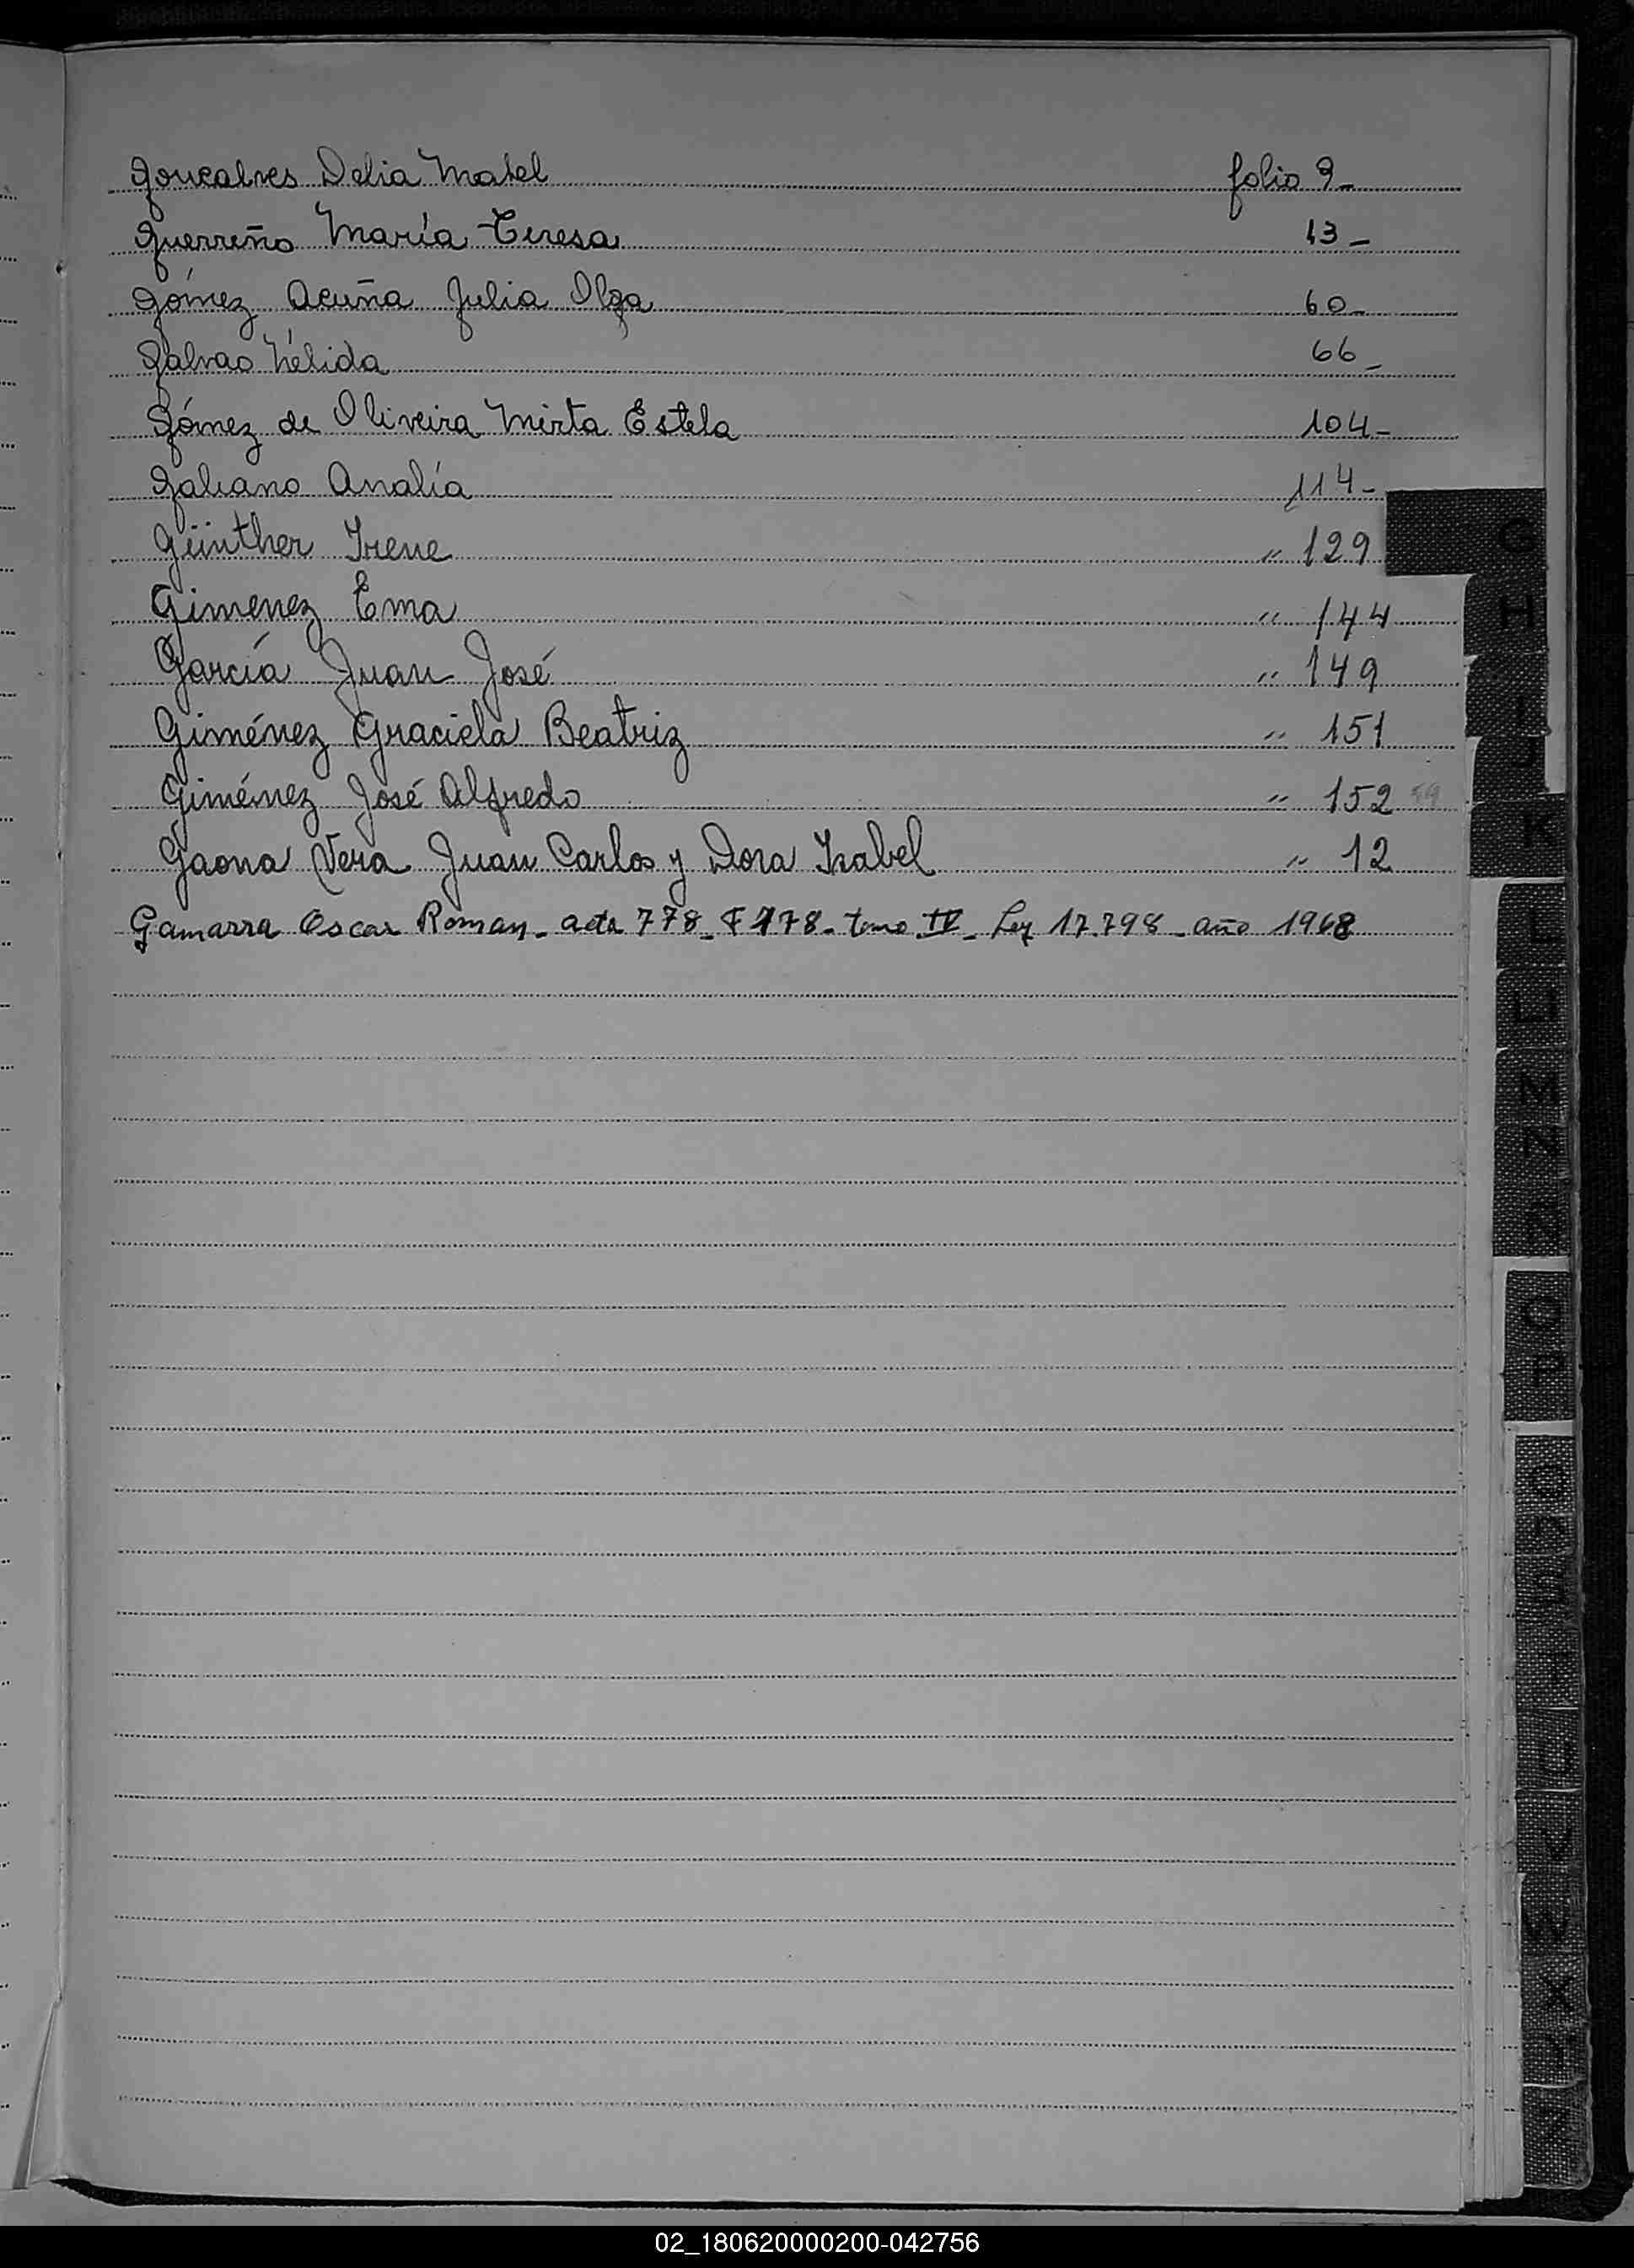 Goncalves Delia Mabel folio 9-
Guerreño María Teresa 13-
Gómez Acuña Julia Olga 60-
Galvao Nélida 66-
Gómez de Oliveira Mirta Estela 104-
Galeano Analía 114-
Günther Irene " 129
Gimenez Ema " 144
García Juan José " 149
Giménez Graciela Beatriz " 151
Giménez José Alfredo " 152
Gaona Vera Juan Carlos y Dora Isabel " 12
Gamarra Oscar Roman- acta 778- F 178- tomo IV- Ley 17.798- año 1968
G
H
I
J
K
L
LL
M
N
Ñ
O
P
Q
R
S
T
U
V
W
X
Y
Z
02_180620000200-042756